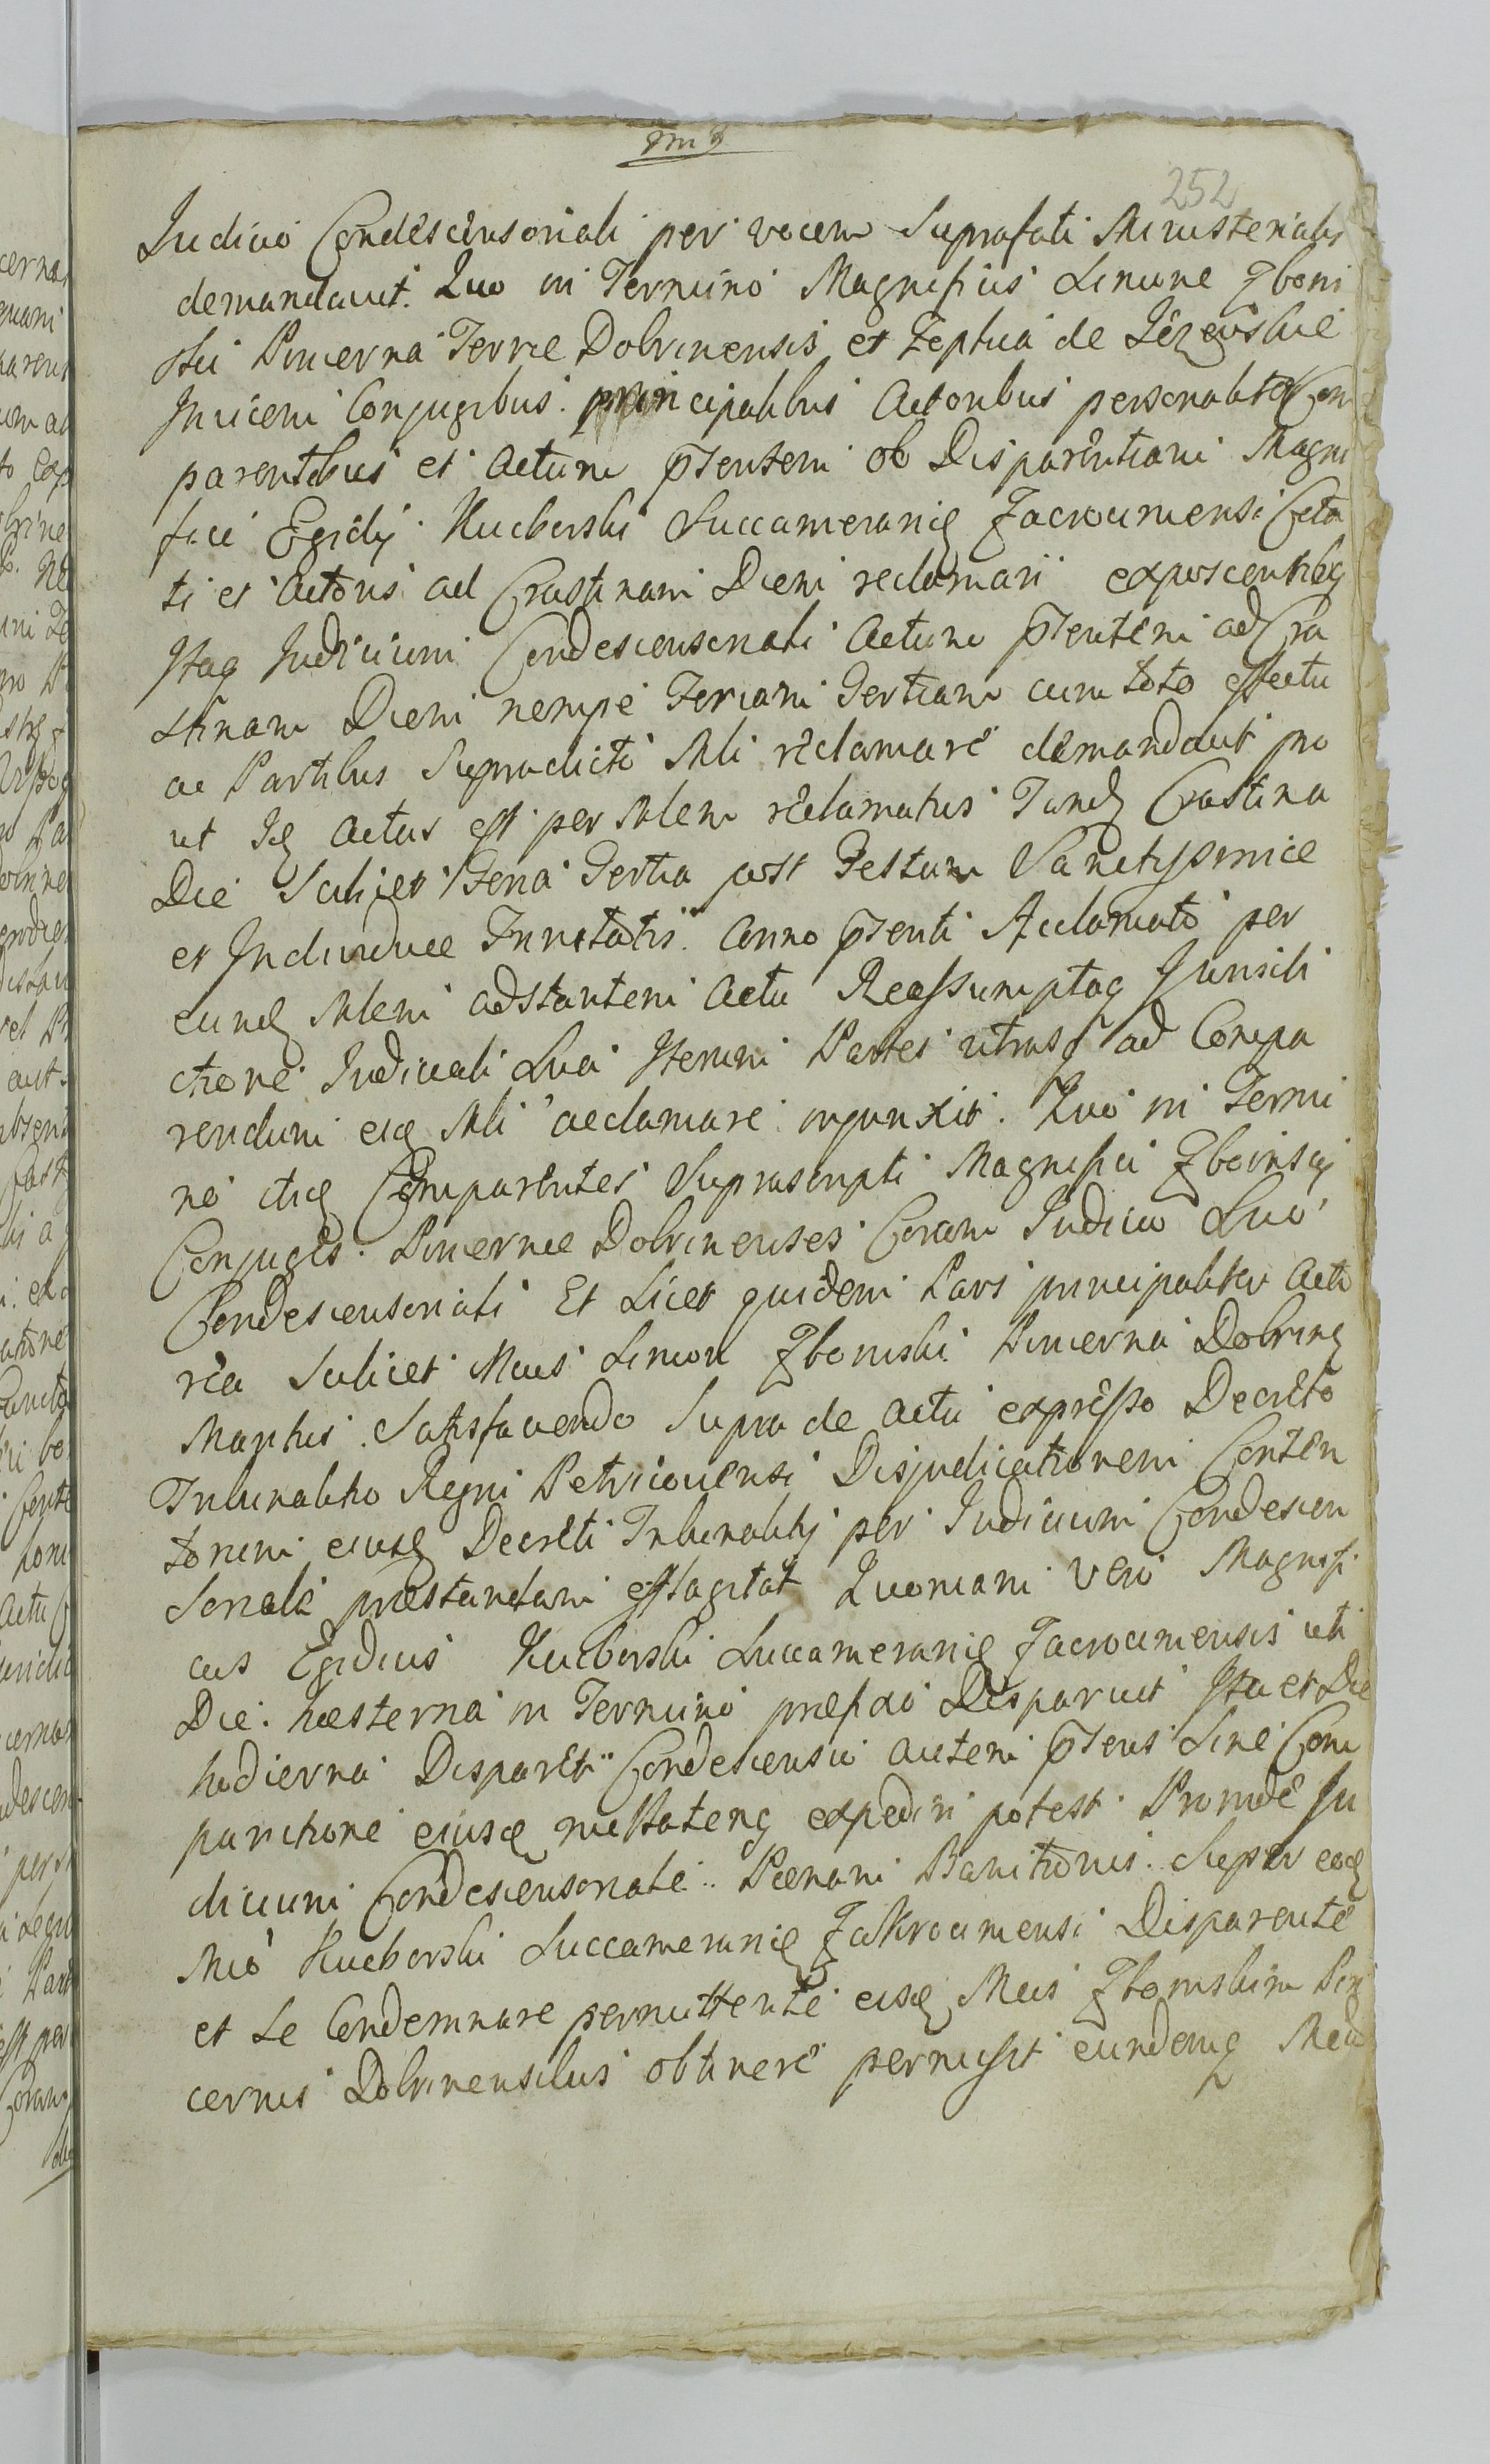 252
Judicio Condescensoriali per vocem Suprafati Ministerialis
demandavit. Quo in Termino Magnificis Simone Zboni
ski Pincerna Terrae Dobrinensis et Zophia de
Invicem Conjugibus principalibus Actoribus personaliter Com
parentibus et Actum pntentem ob Disparentiam Magni
fici Egidij Kucborski Succamerarij Zacrocimensi Cita
ti et Actoris ad Crastinam Diem reclamari exposcentibq
Itaq Judicium Condescensoriali Actum pntentem ad Cra
stinam Diem nempe Feriam Tertiam cum toto effectu
ac Partibus Supradicto Mli reclamare demandavit pro
ut Iq Actus est per Mlem reclamatus Tandq Crastina
Die Scilicet Feria Tertia post Festum Sanctissimae
et Individuae Trinitatis Anno pntenti Acclamato per
eundq Mlem adstantem Actu Reassumptaq Jurisdi
ctione Judiciali Sua Iterum Partes utrasq ad Compa
rendum eidq Mli acclamare injunxit. Quo in Termi
no itidq Comparentes Suprascripti Magnifici Zboinscij
Conjuges Pincernae Dobrinenses Coram Judicio Suo
Condescensoriali Et Licet quidem Pars principaliter Acto
rea Scilicet Mcus Simon Zboinski Pincerna Dobrinq
Maritus Satisfaciendo Supra de Actu expresso Decreto
Tribunalitio Regni Petricoviensi Disjudicationem Conten
torum ejusdq Decreti Tribunalitij per Judicium Condescen
soriale praestandam efflagitat Quoniam vero Magnifi
cus Egidius Kucborski Succamerariq Zacrocimensis uti
Die hesterna in Termino praefixo Disparuit Ita et Die
hodierna Disparet Condescensio autem pntens Sine Com
paritione ejusdq nullatenq expediri potest Proinde Ju
dicium Condescensoriale Poenam Banitionis Super eodq
Mco Kucborski Succamerariq Zakrocimensi Disparente
et Se Condemnare permittente eisdq Mcis Zboinskim Pin
cernis Dobrinensibus obtinere permisit eundemq Mcu